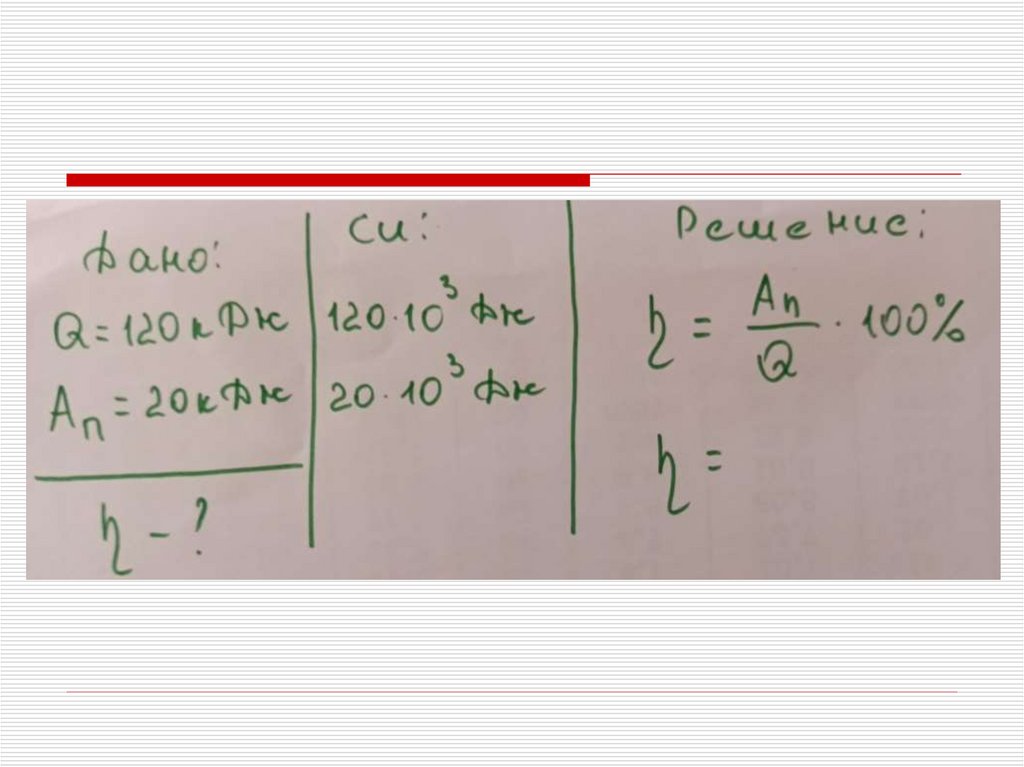 Дано:
Q = 120 кДж
Aп = 20 кДж
η - ?
СИ:
120·10³ Дж
20·10³ Дж
Решение:
η = Aп/Q · 100%
η =